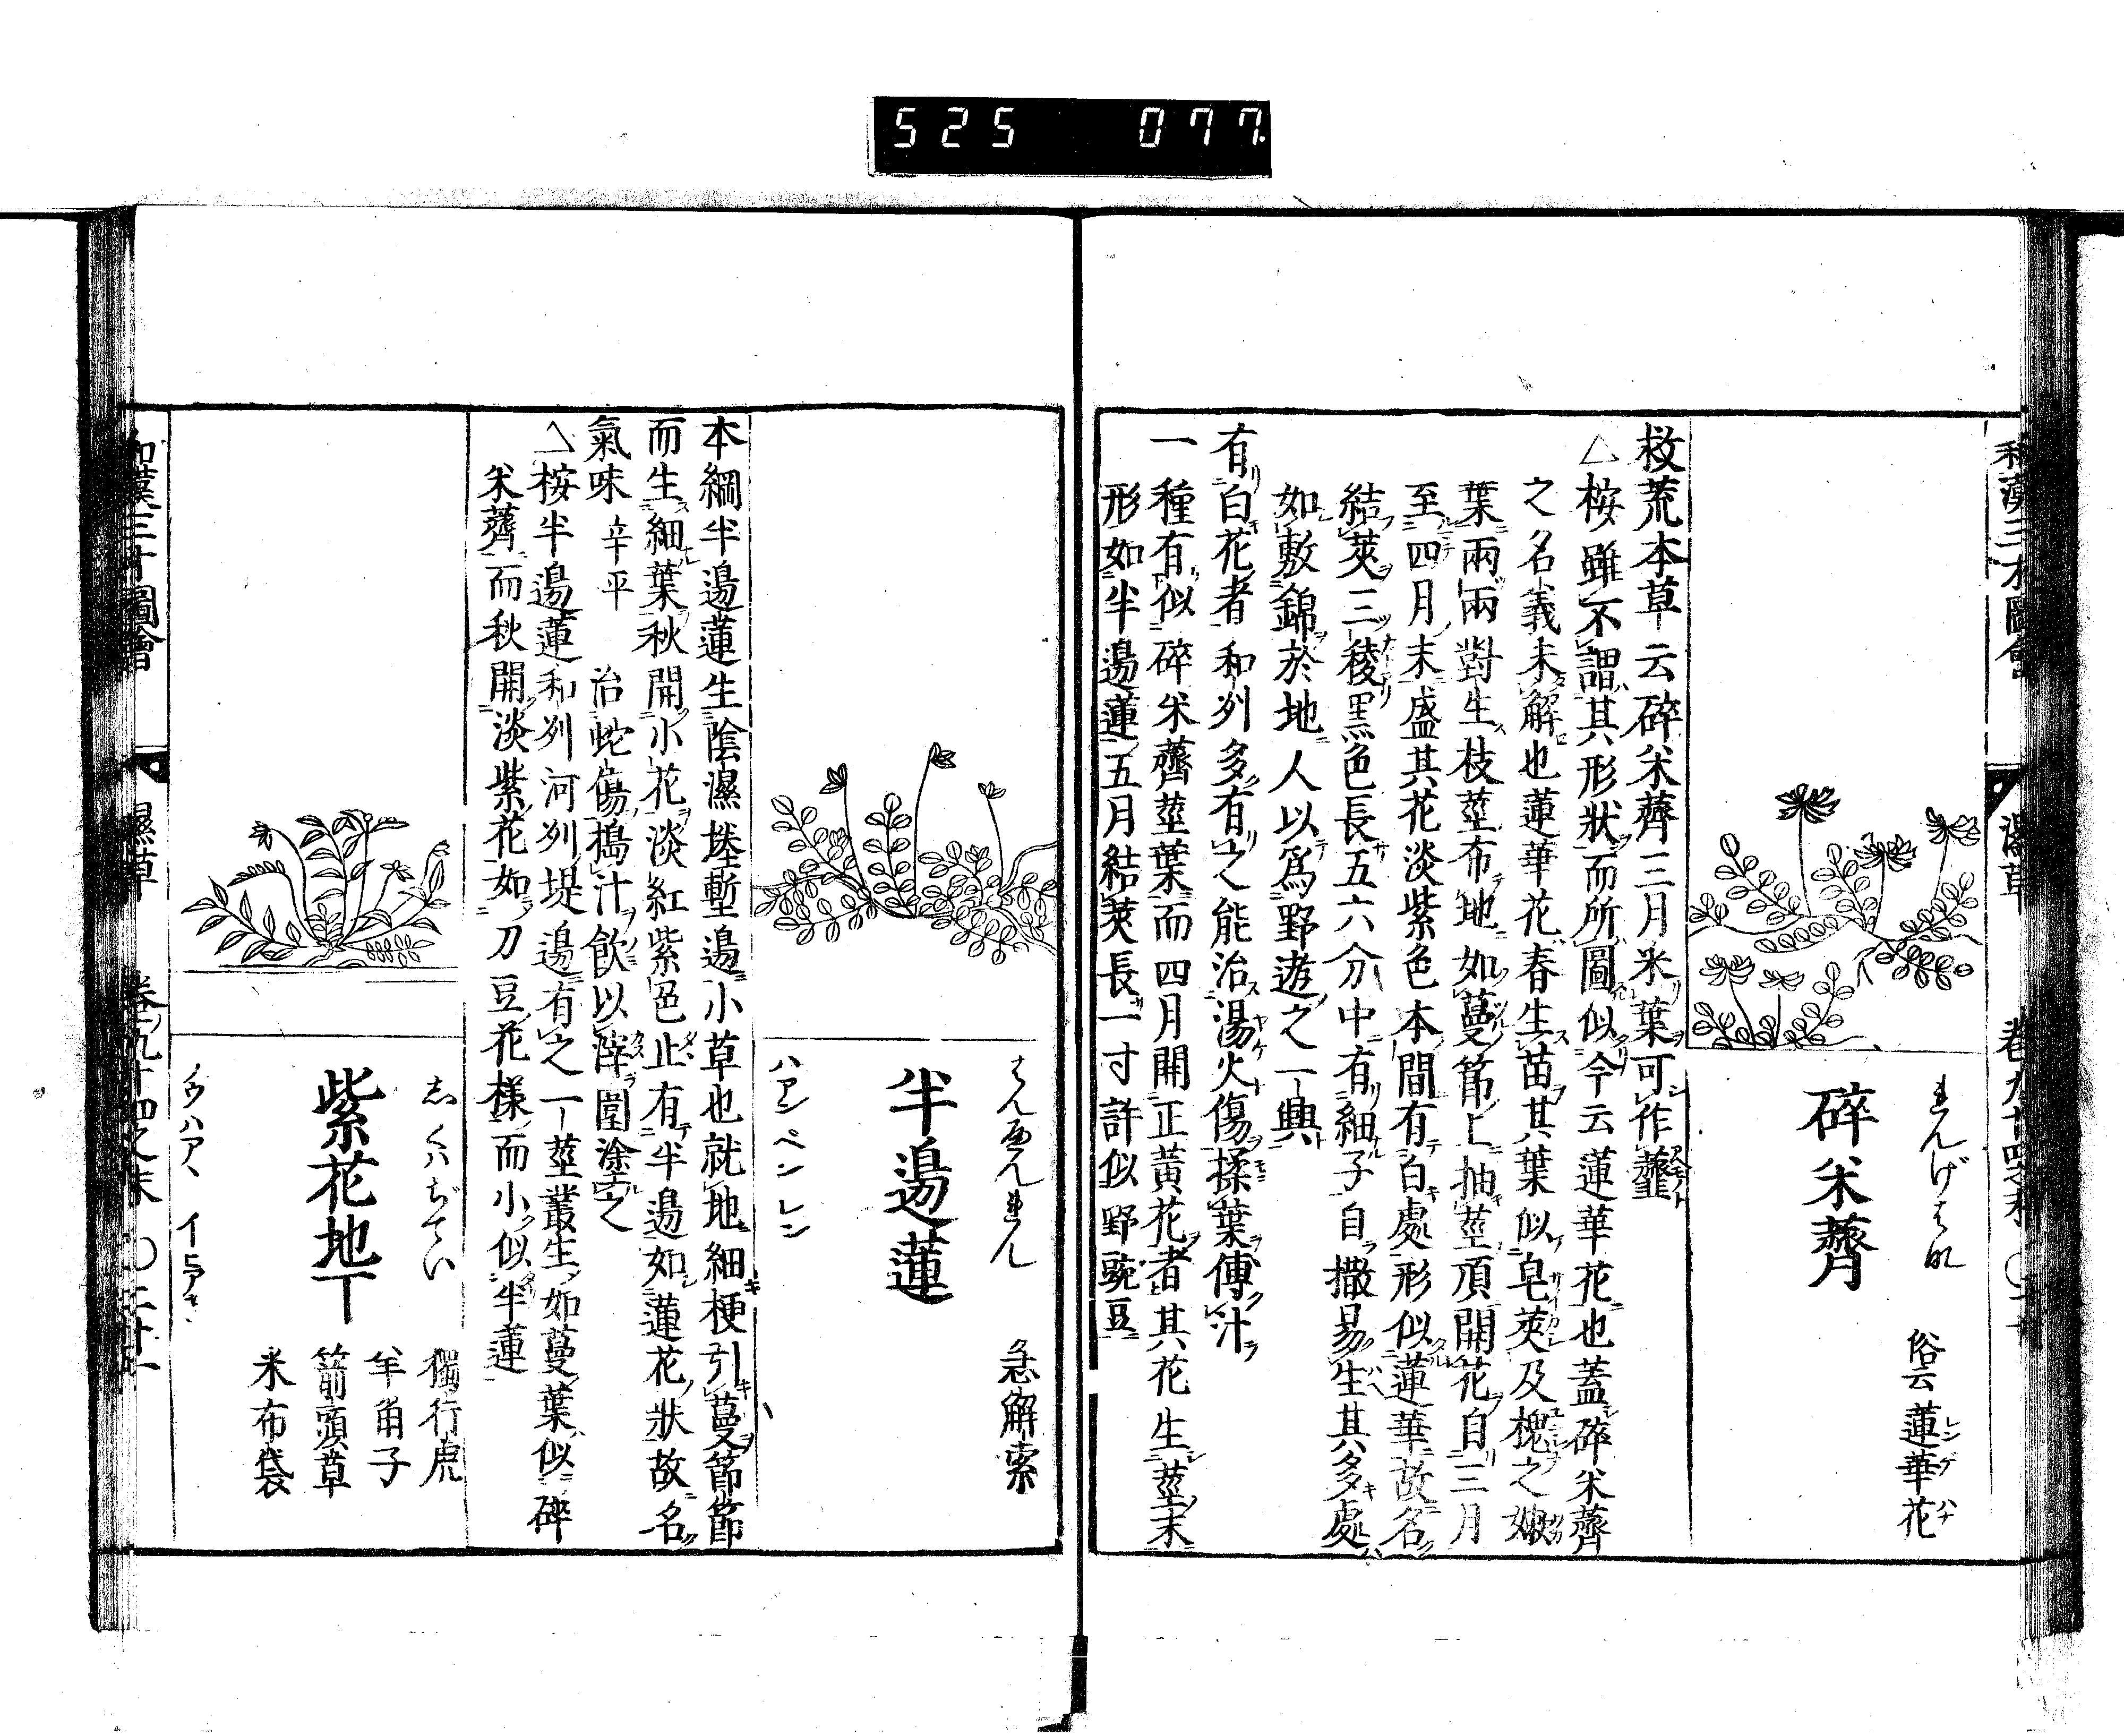 525 077
和漢三才圖會 濕草 卷九十四之末 〇二十
れんげはな
碎米薺
俗云蓮華花
レンゲハナ
救荒本草云碎米薺三月采葉可作虀
△桉雖不謂其形狀而所圖似今云蓮華花也蓋碎米薺
之名義未解也蓮華花春生苗其葉似皂莢及槐之嫩
葉兩兩對生枝莖布地如蔓節上抽莖頂開花自三月
至四月末盛其花淡紫色本間有白處形似蓮華故名
結莢三稜黒色長五六分中有細子自撒易生其多處
如敷錦於地人以爲野遊之一興
有白花者和州多有之能治湯火傷揉葉傅汁
一種有似碎米薺莖葉而四月開正黃花者其花生莖末
形如半邉蓮五月結莢長一寸許似野豌豆
はんへんれん
半邉蓮
急解索
ハアンペンレン
本綱半邉蓮生陰濕塍塹邉小草也就地細梗引蔓節節
而生細葉秋開小花淡紅紫色止有半邉如蓮花狀故名
氣味 辛平 治蛇傷搗汁飮以滓圍塗之
△桉半邉蓮和州河州堤邉有之一莖叢生如蔓葉似碎
米薺而秋開淡紫花如刀豆花樣而小似半蓮
しくはぢてい
紫花地丁
獨行虎
羊角子
箭頭草
米布袋
和漢三才圖會 濕草 卷九十四之末 〇二十一